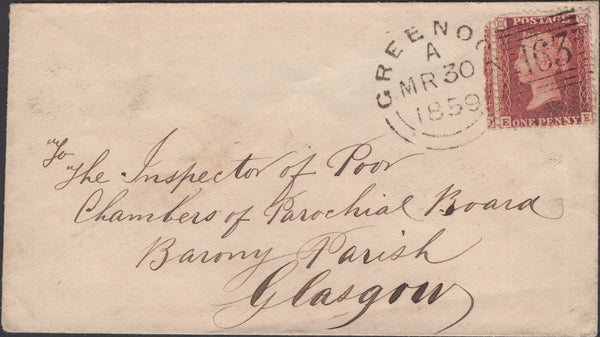 GREENOCK
A
MR 30
1859
163
POSTAGE
ONE PENNY
E E
"To
"The Inspector of Poor
Chambers of Parochial Board
Barony Parish
Glasgow